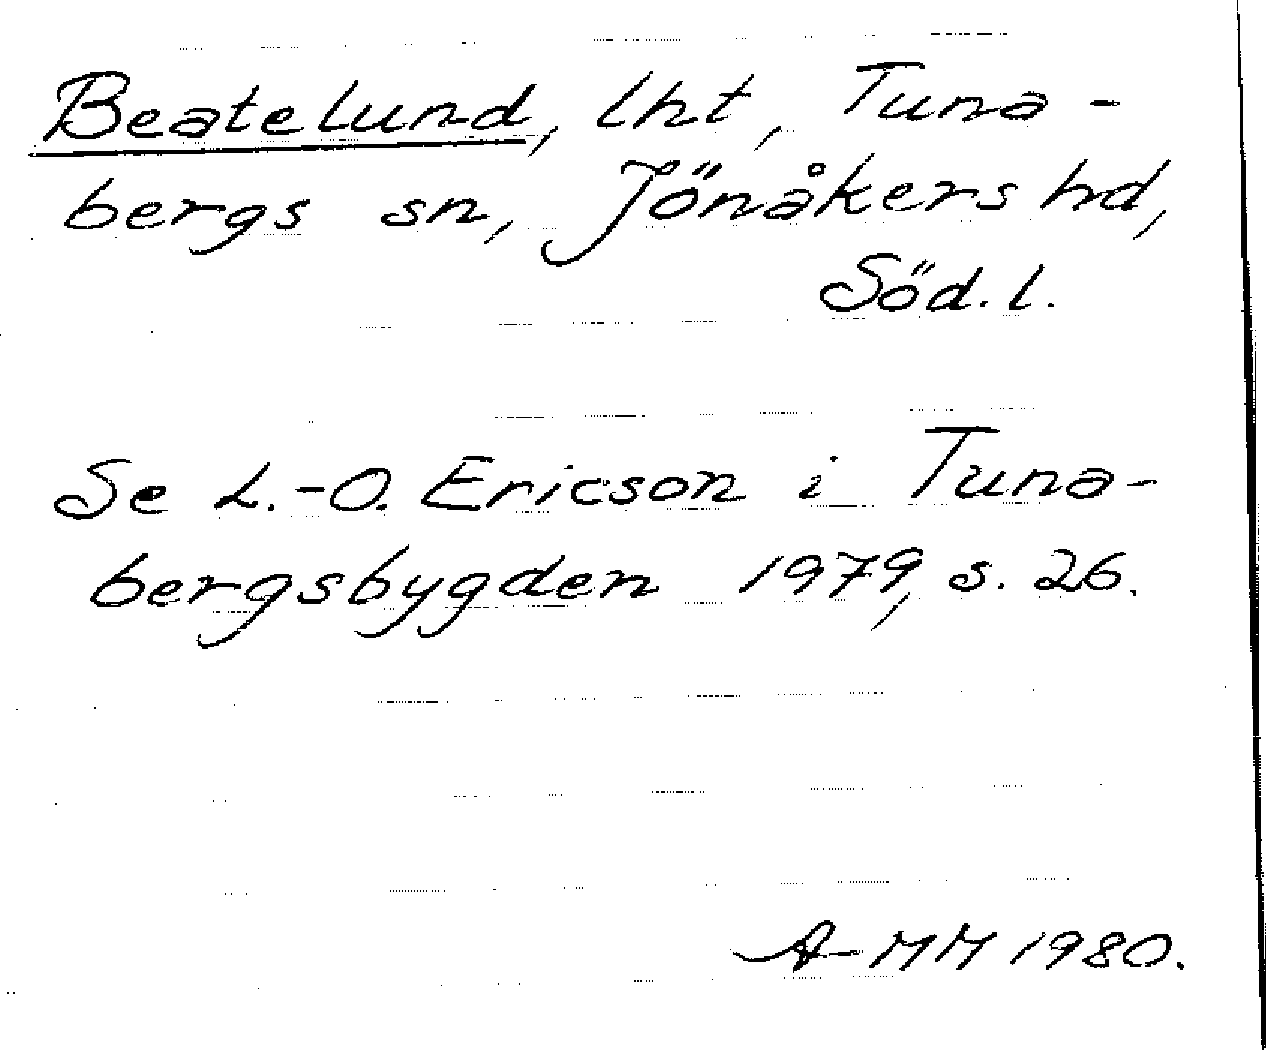 Beatelund, lht, Tuna-
bergs sn, Jönåkers hd,
Söd. l.
Se L.-O. Ericson i Tuna-
bergsbygden 1979, s. 26.
A-MM 1980.